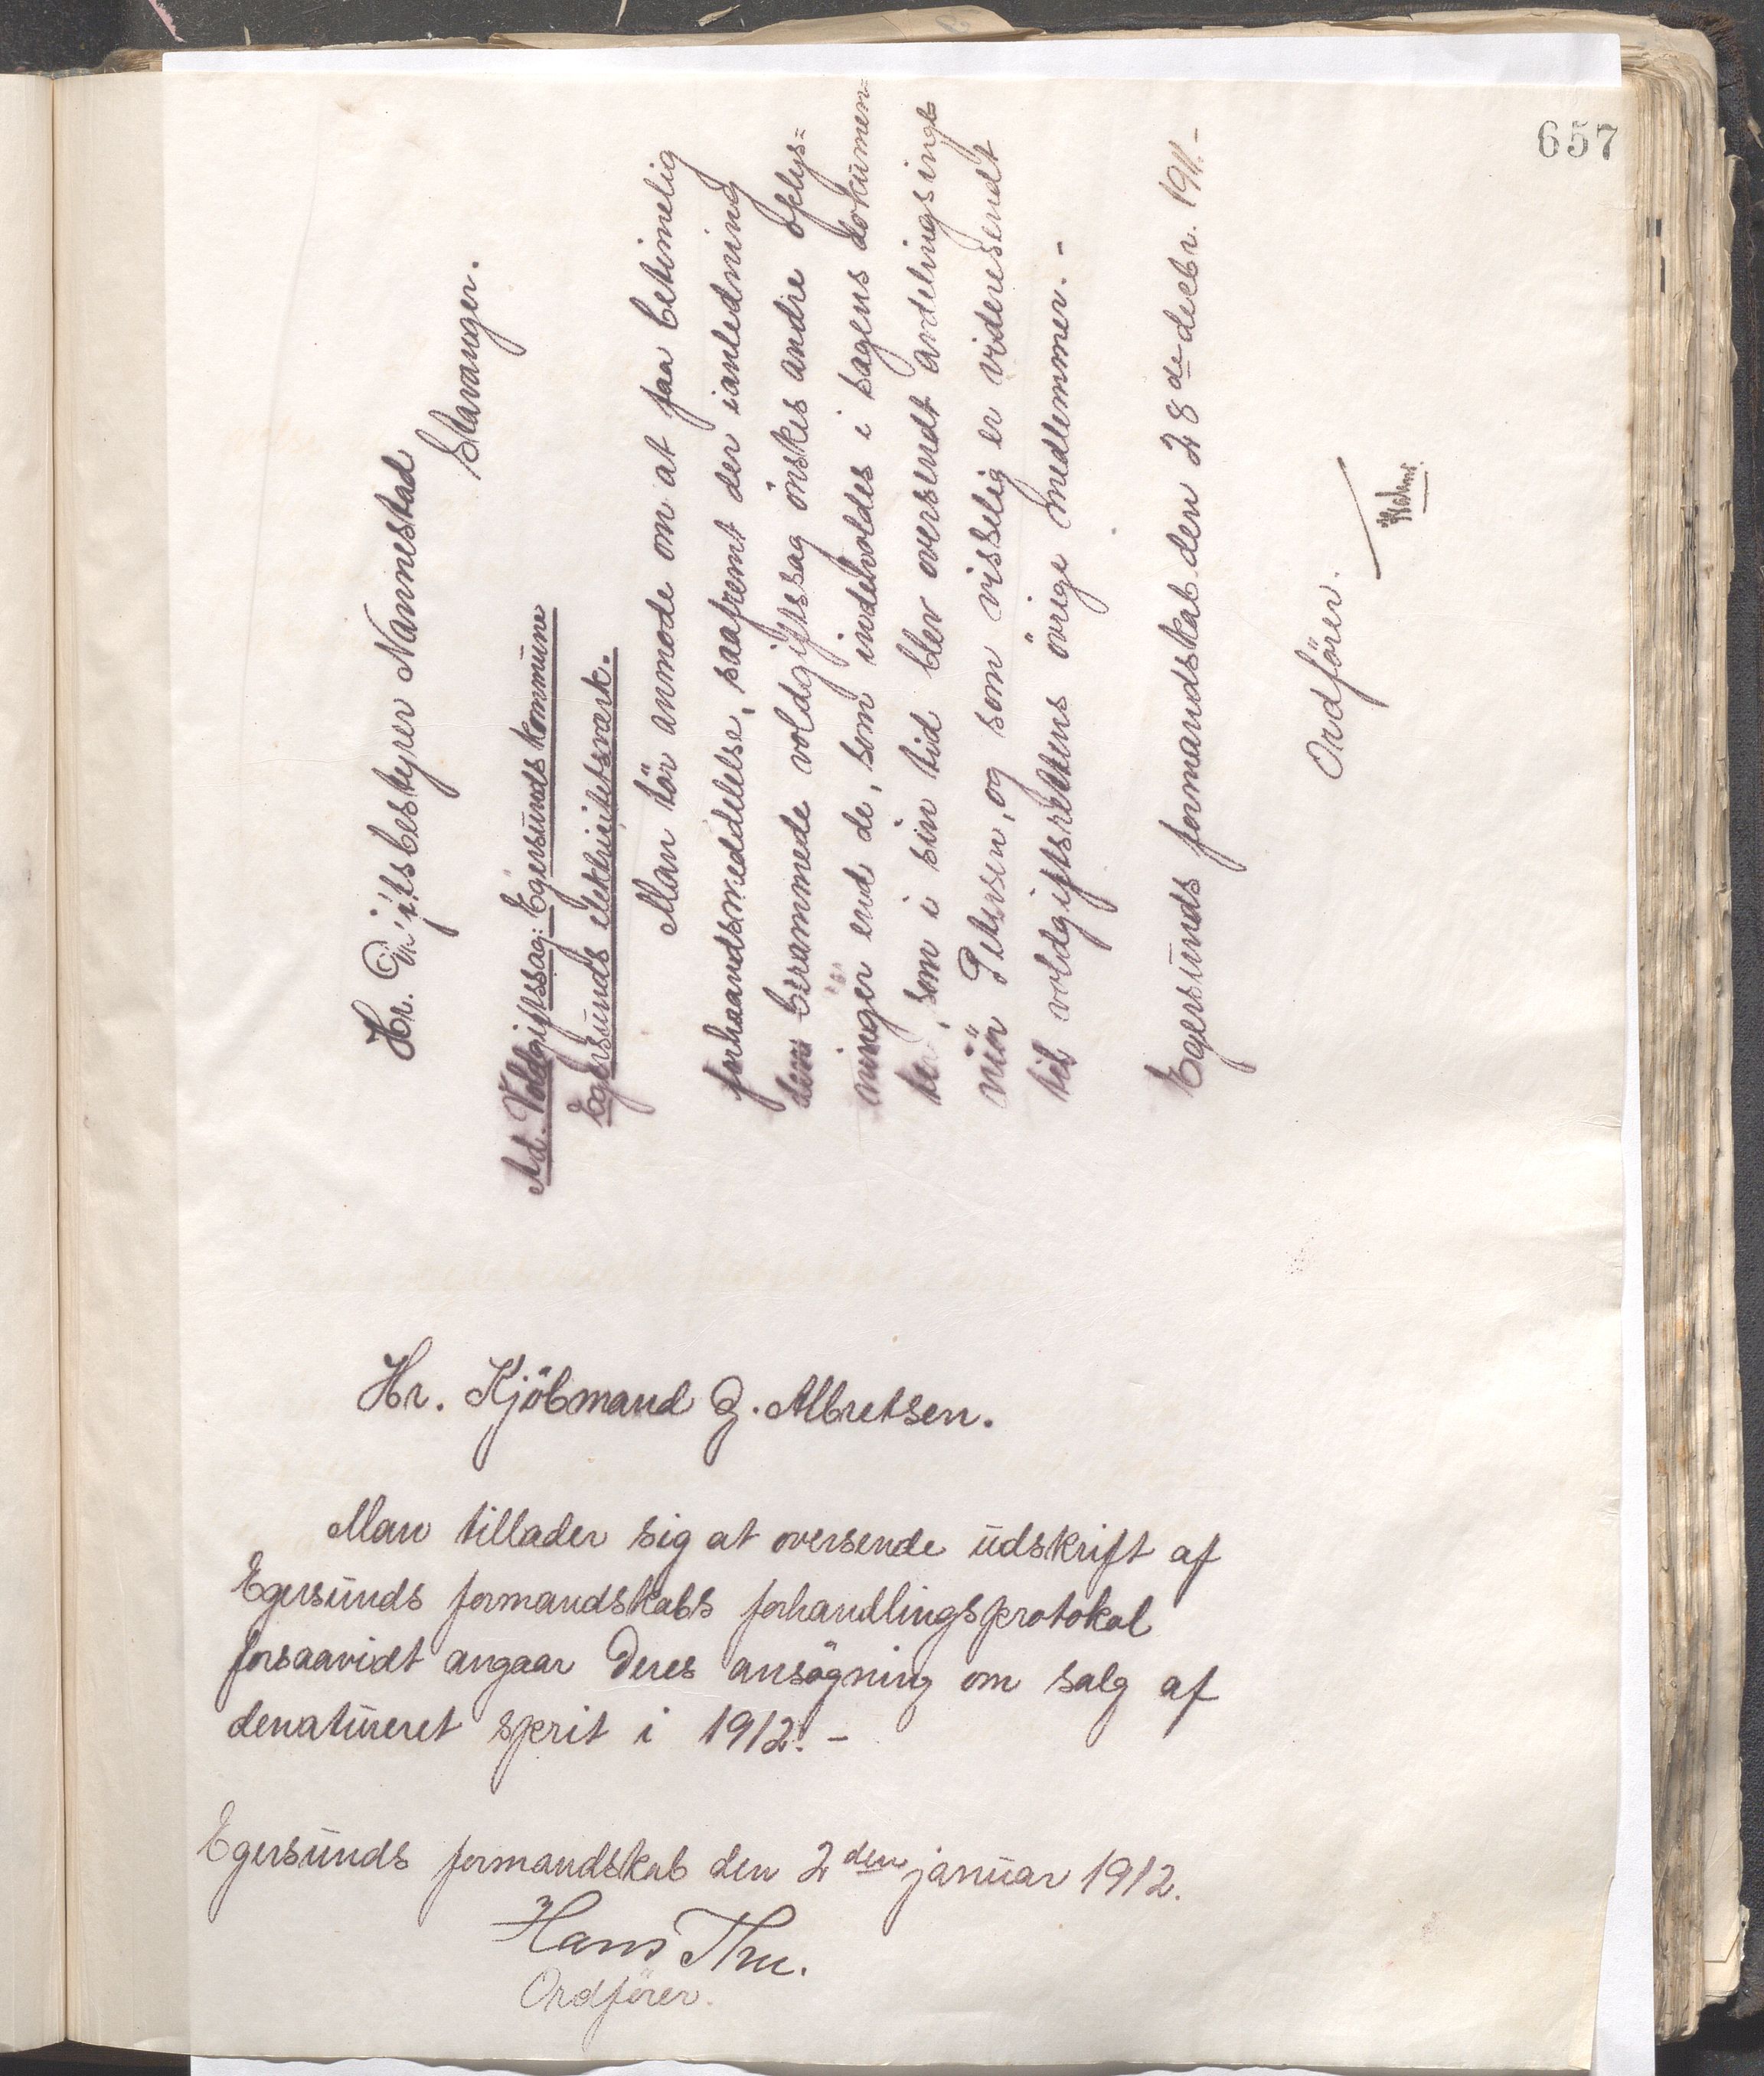 657
Hr. Driftsbestyrer Nannestad
Stavanger.
Ad. Voldgiftssag: Egersunds kommune
Egersunds elektricitetsværk.
Man tör anmode om at faa betimelig
forhaandsmeddelelse, saafremt der ianledning
den berammede voldgiftssag önskes andre oplys=
ninger end de, som indeholdes i sagens dokumen=
ter, som i sin tid blev oversendt andelingsinge
niör Petersen, og som visselig er videresendt
til voldgiftsrettens övrige medlemmer. -
Egersunds formandskab den 28de decbr. 1911.-
Ordförer.
Hr. Kjöbmand J. Albretsen.
Man tillader sig at oversende udskrift af
Egersunds formandskabs forhandlingsprotokol
forsaavidt angaar Deres ansögning om salg af
denatureret sprit i 1912. -
Egersunds formandskab den 2den januar 1912.
Hans Thu.
Ordförer.